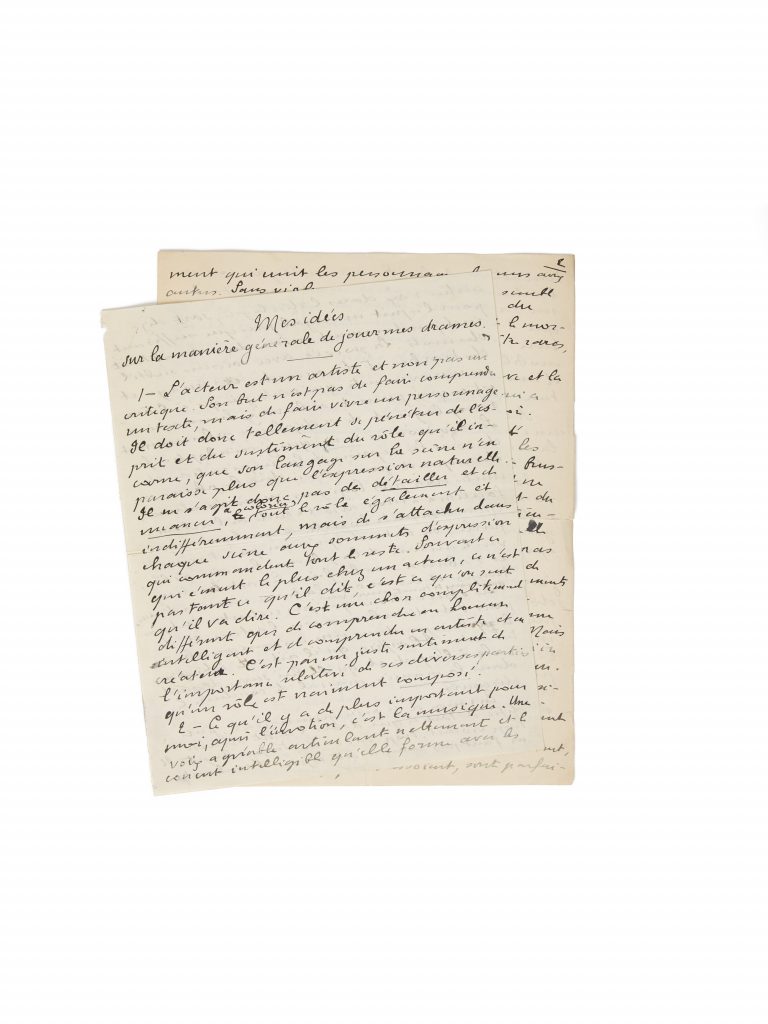 Mes idées
sur la manière générale de jouer mes drames.
1 — L'acteur est un artiste et non pas un
critique. Son but n'est pas de faire comprendre
un texte, mais de faire vivre un personnage.
Il doit donc tellement se pénétrer de l'es-
prit et du sentiment du rôle qu'il in-
carne, que son langage sur la scène n'en
paraisse plus que l'expression naturelle.
Il ne s'agit donc pas de détailler et de
nuancer, de colorier tout le rôle également et
indifféremment, mais de s'attacher dans
chaque scène aux sommets d'expression
qui commandent tout le reste. Souvent ce
qui émeut le plus chez un acteur, ce n'est
pas tant ce qu'il dit, c'est ce qu'on sent
qu'il va dire. C'est une chose complètement
différente que de comprendre en homme
intelligent et de comprendre en artiste et en
créateur. C'est par un juste sentiment de
l'importance relative de ses diverses parties
qu'un rôle est vraiment composé.
2 — Ce qu'il y a de plus important pour
moi, après l'émotion, c'est la musique. Une
voix agréable articulant nettement et le
concert intelligible qu'elle forme avec les
2
ment qui unit les
autres. Sans
du
et la
les
ne
du
ments
Mais
sont parfai-